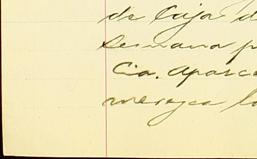 de Caja d
semana p
Cia. aparec
merezca la